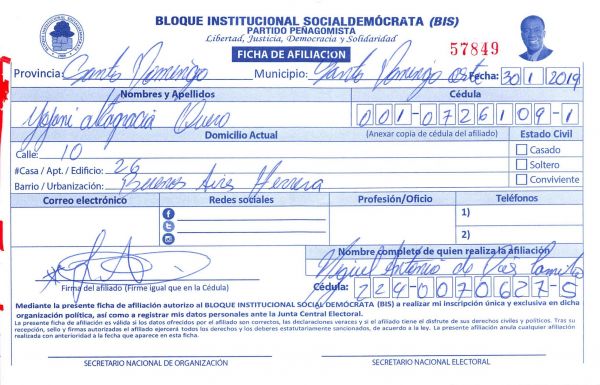 BLOQUE INSTITUCIONAL SOCIALDEMÓCRATA (BIS)
PARTIDO PEÑAGOMISTA
Libertad, Justicia, Democracia y Solidaridad
57849
FICHA DE AFILIACIÓN
Provincia: Santo Domingo Municipio: Santo Domingo Oeste Fecha: 30 1 2019
Nombres y Apellidos Cédula
Altagracia 001-0726109-1
Domicilio Actual (Anexar copia de cédula del afiliado) Estado Civil
Calle: 10 Casado
#Casa / Apt. / Edificio: 26 Soltero
Barrio / Urbanización: Buenos Aires Herrera Conviviente
Correo electrónico Redes sociales Profesión/Oficio Teléfonos
1)
2)
Nombre completo de quien realiza la afiliación
Miguel Antonio de
Firma del afiliado (Firme igual que en la Cédula) Cédula: 224-0070627-5
Mediante la presente ficha de afiliación autorizo al BLOQUE INSTITUCIONAL SOCIAL DEMÓCRATA (BIS) a realizar mi inscripción única y exclusiva en dicha
organización política, así como a registrar mis datos personales ante la Junta Central Electoral.
La presente ficha de afiliación es válida si los datos ofrecidos por el afiliado son correctos, las declaraciones veraces y si el afiliado tiene el disfrute de sus derechos civiles y políticos. Tras su
recepción, sello y firmas autorizadas el afiliado ejercerá todos los derechos y los deberes estatutariamente sancionados, de acuerdo a la ley. La presente afiliación anula cualquier afiliación
realizada con anterioridad a la fecha que aparece en esta ficha.
SECRETARIO NACIONAL DE ORGANIZACIÓN SECRETARIO NACIONAL ELECTORAL